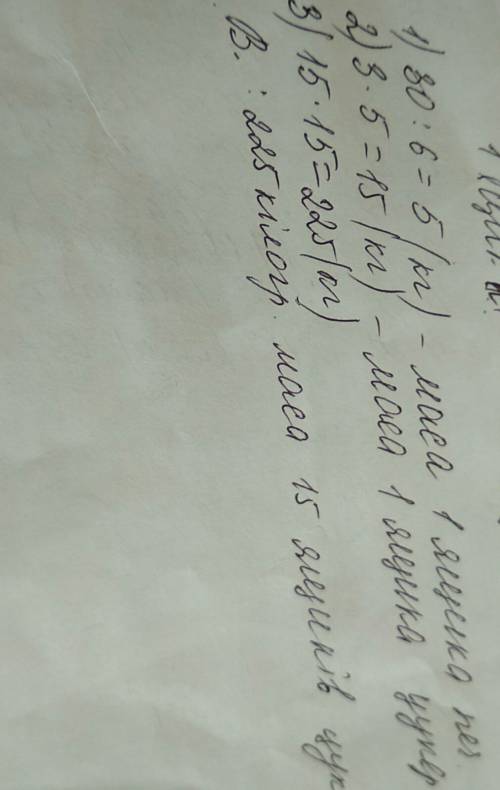 1 ящик
1) 30 : 6 = 5 (кг) - маса 1 ящика печ.
2) 3 · 5 = 15 (кг) - маса 1 ящика цукер
3) 15 · 15 = 225 (кг)
В. : 225 кілогр. маса 15 ящиків цук